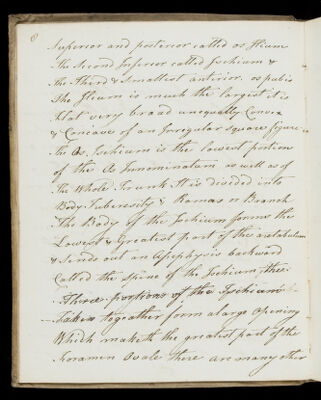 8
Superior and posterior called os Ilium
The Second Inferior called Ischium &
the Third & Smallest anterior. os pubis
The Ilium is much the largest it is
flat very broad unequally Convex
& Concave of an Irregular square figure
The Os. Ischium is the lowest portion
of the Os Innominatum as well as of
the Whole Trunk It is divided into
Body Tuberosity & Ramas or Branch
The Body of the Ischium forms the
Lowest & Greatest part of the acetabulum
& Sends out an Apophysis backward
Called the spine of the Ischium these
Three portions of the Ischium
Taken together form a large Opening
Which maketh the greatest part of the
Foramen Ovale there are many other